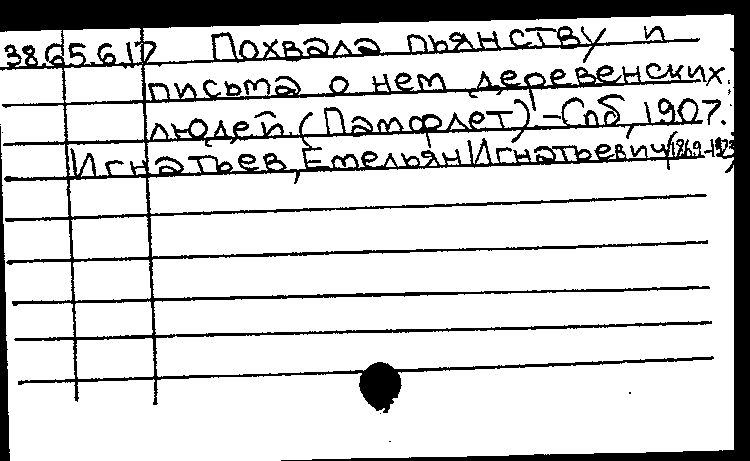 38.65.6.17. Похвала пьянству и
письма о нем деревенских
людей. (Памфлет) - Спб, 1907.
Игнатьев, Емельян Игнатьевич (1869-1923)